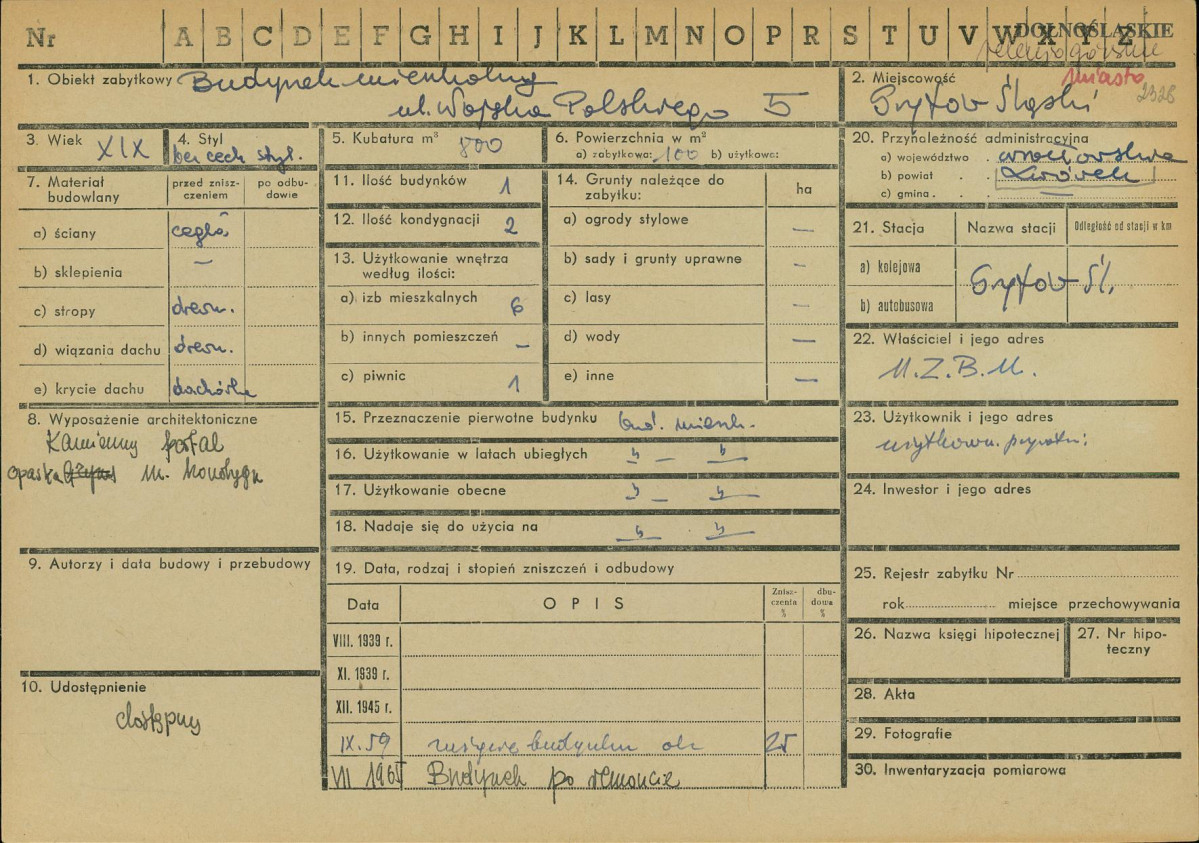 Nr A B C D E F G H I J K L M N O P R S T U V W X Y Z
DOLNOŚLĄSKIE
jeleniogórskie
miasto
2328
1. Obiekt zabytkowy Budynek mieszkalny
ul. Wojska Polskiego 5
2. Miejscowość
Gryfów Śląski
3. Wiek XIX
4. Styl
bez cech styl.
5. Kubatura m³ 800
6. Powierzchnia w m²
a) zabytkowa: 100 b) użytkowa:
20. Przynależność administracyjna
a) województwo . wrocławskie
b) powiat . . Lwówek
c) gmina . . —
7. Materiał budowlany
przed zniszczeniem
po odbudowie
a) ściany cegła
b) sklepienia —
c) stropy drewn.
d) wiązania dachu drewn.
e) krycie dachu dachówka
11. Ilość budynków 1
12. Ilość kondygnacji 2
13. Użytkowanie wnętrza
według ilości:
a) izb mieszkalnych 6
b) innych pomieszczeń –
c) piwnic 1
14. Grunty należące do
zabytku:
ha
a) ogrody stylowe —
b) sady i grunty uprawne –
c) lasy –
d) wody —
e) inne —
21. Stacja
Nazwa stacji
Odległość od stacji w km
a) kolejowa
b) autobusowa
Gryfów Śl.
22. Właściciel i jego adres
M.Z.B.M.
8. Wyposażenie architektoniczne
Kamienny portal
opaska m. kondygn
15. Przeznaczenie pierwotne budynku bud. mieszk.
16. Użytkowanie w latach ubiegłych " — "
17. Użytkowanie obecne " — "
18. Nadaje się do użycia na " . "
23. Użytkownik i jego adres
użytkown. prywatni
24. Inwestor i jego adres
9. Autorzy i data budowy i przebudowy
10. Udostępnienie
dostępny
19. Data, rodzaj i stopień zniszczeń i odbudowy
Data
OPIS
Zniszczenia %
dbudowa %
VIII. 1939 r.
XI. 1939 r.
XII. 1945 r.
IX. 59 zużycie budynku ok 25
VII 1965 Budynek po remoncie
25. Rejestr zabytku Nr
rok miejsce przechowywania
26. Nazwa księgi hipotecznej
27. Nr hipoteczny
28. Akta
29. Fotografie
30. Inwentaryzacja pomiarowa